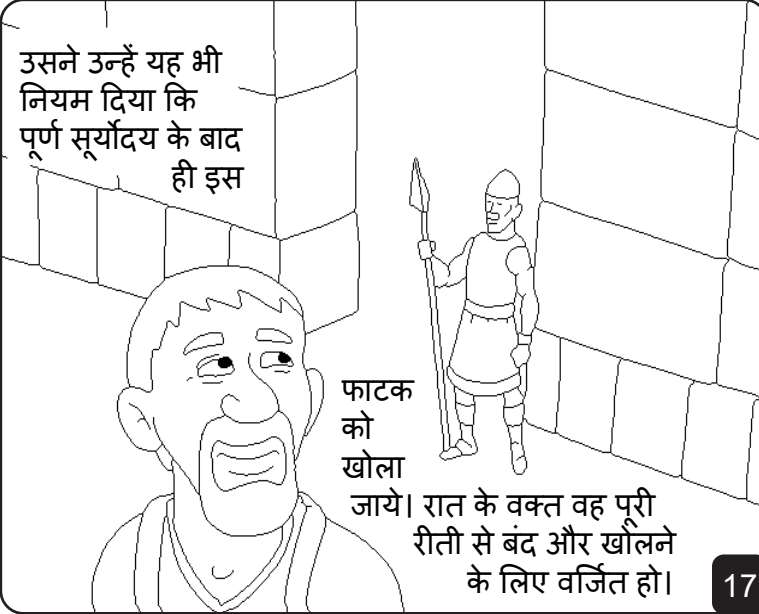 उसने उन्हें यह भी
नियम दिया कि
पूर्ण सूर्योदय के बाद
ही इस
फाटक
को
खोला
जाये। रात के वक्त वह पूरी
रीती से बंद और खोलने
के लिए वर्जित हो।
17